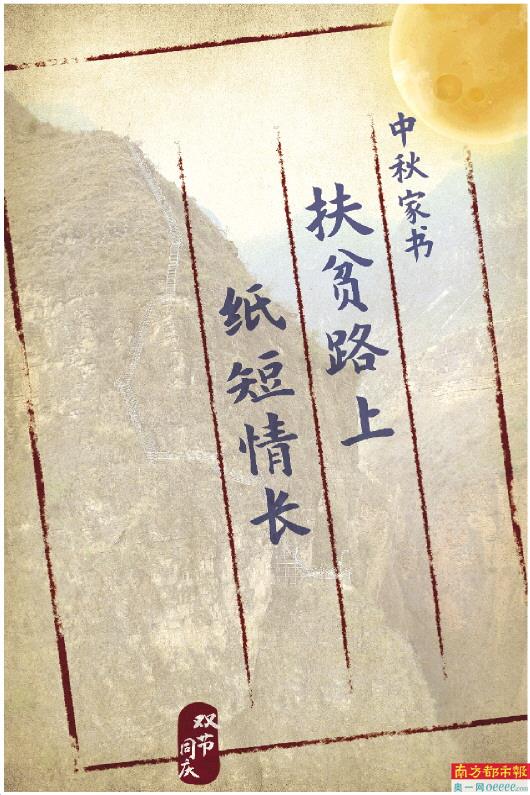 中秋家书
扶贫路上
纸短情长
双节
同庆
南方都市報
奥一网oeeee.com